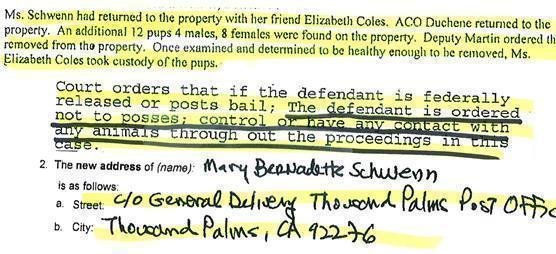 Ms. Schwenn had returned to the property with her friend Elizabeth Coles. ACO Duchene returned to the
property. An additional 12 pups 4 males, 8 females were found on the property. Deputy Martin ordered th
removed from the property. Once examined and determined to be healthy enough to be removed, Ms.
Elizabeth Coles took custody of the pups.
Court orders that if the defendant is federally
released or posts bail; The defendant is ordered
not to posses; control or have any contact with
any animals through out the proceedings in this
case.
2. The new address of (name): Mary Bernadette Schwenn
is as follows:
a. Street: c/o General Delivery Thousand Palms Post Offic
b. City: Thousand Palms, CA 92276